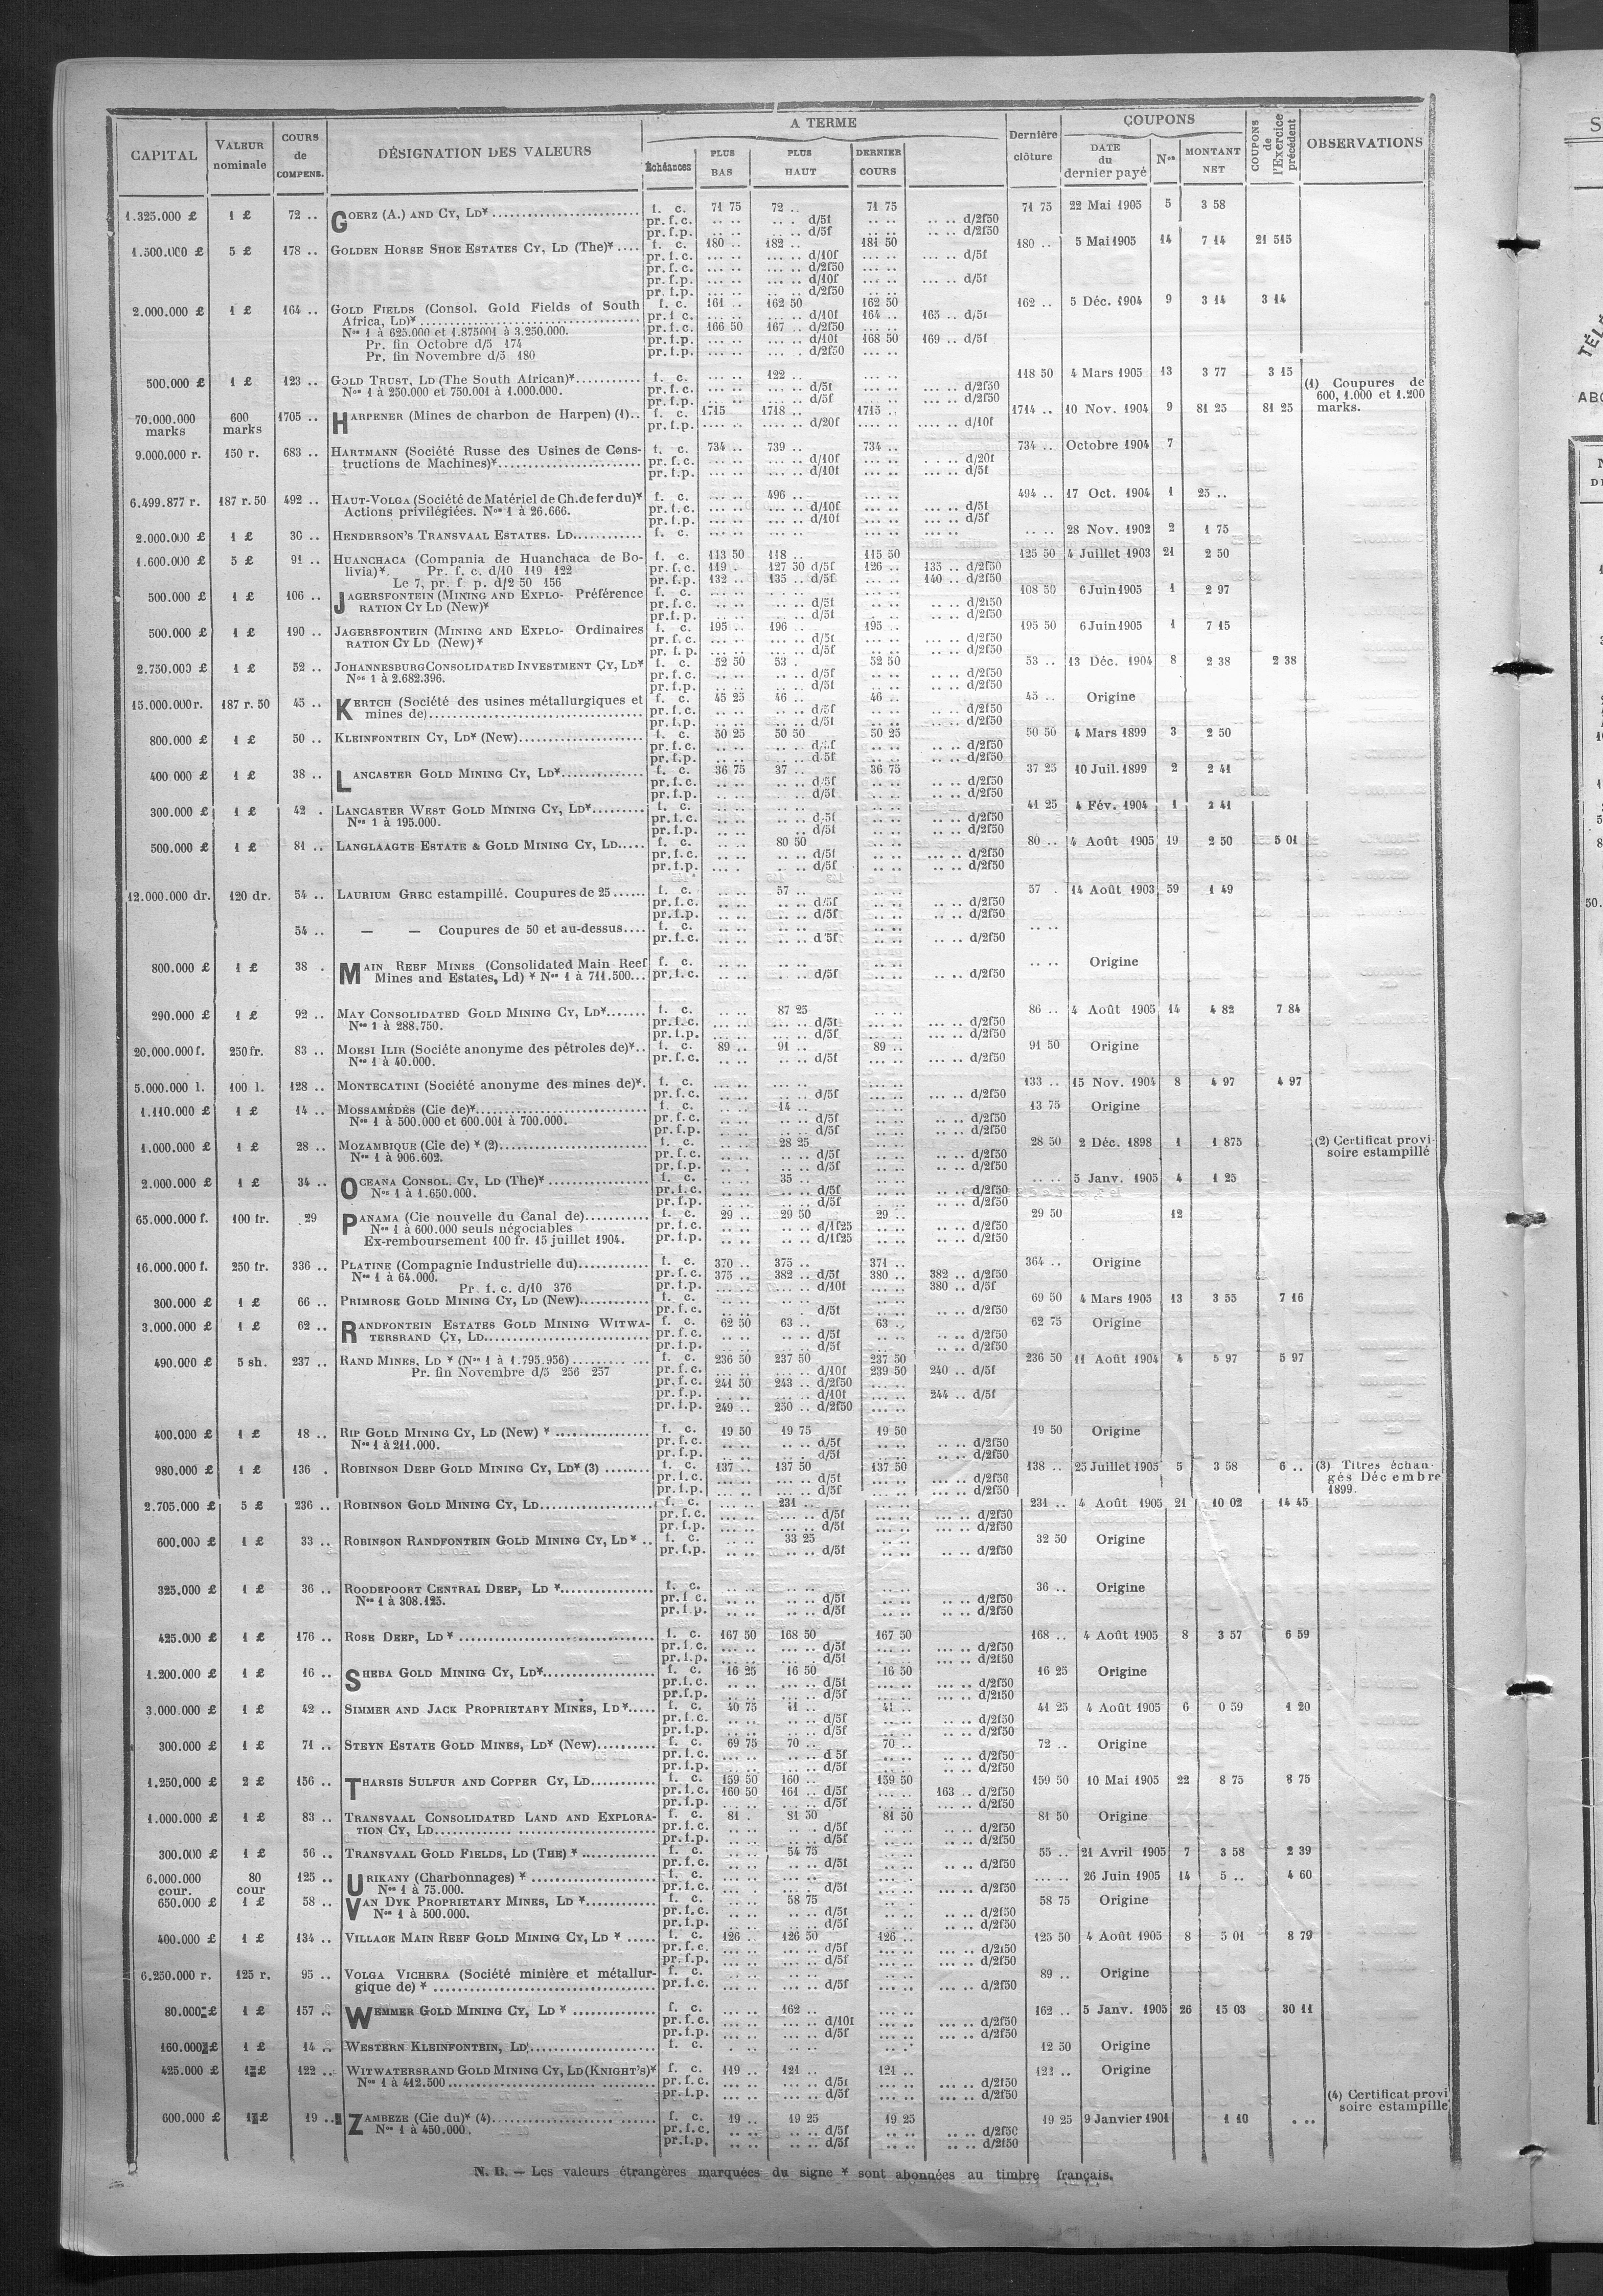 CAPITAL VALEUR nominale COURS de COMPENS. DÉSIGNATION DES VALEURS A TERME Échéances PLUS BAS PLUS HAUT DERNIER COURS Dernière clôture COUPONS DATE du dernier payé Nos MONTANT NET COUPONS de l'Exercice précédent OBSERVATIONS
1.325.000 £ 1 £ 72 .. GOERZ (A.) AND CY, LD* f. c. 71 75 72 .. 71 75 71 75 22 Mai 1905 5 3 58
pr. f. c. .. .. .. . d/5f .. .. .. .. d/2f50
pr. f.p. .. .. .. .. d/5f .. .. .. .. d/2f50
1.500.000 £ 5 £ 178 .. GOLDEN HORSE SHOE ESTATES CY, LD (The)* .... f. c. 180 .. 182 .. 181 50 180 .. 5 Mai 1905 14 7 14 21 515
pr. f. c. ... .. ... .. d/10f ... .. ... .. d/5f
pr. f.c. ... .. ... .. d/2f50 ... ..
pr. f.p. ... .. ... .. d/10f ... .. ... .. d/5f
pr. f.p. ... .. ... .. d/2f50 ... ..
2.000.000 £ 1 £ 164 .. GOLD FIELDS (Consol. Gold Fields of South f. c. 161 .. 162 50 162 50 162 .. 5 Déc. 1904 9 3 14 3 14
Africa, LD)* pr. f. c. ... .. ... .. d/10f 164 .. 165 .. d/5f
Nos 1 à 625.000 et 1.875001 à 3.250.000. pr. f.c. 166 50 167 .. d/2f50 ... ..
Pr. fin Octobre d/5 174 pr. f.p. ... .. ... .. d/10f 168 50 169 .. d/5f
Pr. fin Novembre d/5 180 pr. f.p. ... .. ... .. d/2f50 ... ..
500.000 £ 1 £ 123 .. GOLD TRUST, LD (The South African)* f. c. ... .. 122 .. ... .. 118 50 4 Mars 1905 13 3 77 3 15
Nos 1 à 250.000 et 750.001 à 1.000.000. pr. f. c. ... .. ... .. d/5f ... .. ... .. d/2f50
pr. f.p. ... .. ... .. d/5f ... .. ... .. d/2f50
(1) Coupures de
600, 1.000 et 1.200
marks.
70.000.000 marks 600 marks 1705 .. HARPENER (Mines de charbon de Harpen) (1).. f. c. 1715 1718 .. 1715 .. 1714 .. 10 Nov. 1904 9 81 25 81 25
pr. f.p. .... .. .... .. d/20f .... .. .... .. d/10f
9.000.000 r. 150 r. 683 .. HARTMANN (Société Russe des Usines de Cons- f. c. 734 .. 739 .. 734 .. 734 .. Octobre 1904 7
tructions de Machines)* pr. f.c. ... .. ... .. d/10f ... .. ... .. d/20f
pr. f.p. ... .. ... .. d/10f ... .. ... .. d/5f
6.499.877 r. 187 r. 50 492 .. HAUT-VOLGA (Société de Matériel de Ch. de fer du)* f. c. ... .. 496 .. ... .. 494 .. 17 Oct. 1904 1 25 ..
Actions privilégiées. Nos 1 à 26.666. pr. f. c. ... .. ... .. d/10f ... .. ... .. d/5f
pr. f.p. ... .. ... .. d/10f ... .. ... .. d/5f
2.000.000 £ 1 £ 36 .. HENDERSON'S TRANSVAAL ESTATES. LD f. c. ... .. ... .. ... .. .. .. 28 Nov. 1902 2 1 75
1.600.000 £ 5 £ 91 .. HUANCHACA (Compania de Huanchaca de Bo- f. c. 113 50 118 .. 115 50 125 50 4 Juillet 1903 21 2 50
livia)*. Pr. f. c. d/10 119 122 pr. f.c. 119 . 127 50 d/5f 126 .. 135 .. d/2f50
Le 7, pr. f. p. d/2 50 156 pr. f.p. 132 .. 135 .. d/5f ... .. 140 .. d/2f50
500.000 £ 1 £ 106 .. JAGERSFONTEIN (MINING AND EXPLO- Préférence f. c. 108 50 6 Juin 1905 1 2 97
RATION CY LD (New)* pr. f.c. .. .. .. .. d/5f .. .. .. .. d/2f50
pr. f.p. .. .. .. .. d/5f .. .. .. .. d/2f50
500.000 £ 1 £ 190 .. JAGERSFONTEIN (MINING AND EXPLO- Ordinaires f. c. 195 .. 196 .. 195 .. 195 50 6 Juin 1905 1 7 15
RATION CY LD (New)* pr. f. c. ... .. ... .. d/5f ... .. ... .. d/2f50
pr. f. p. ... .. ... .. d/5f ... .. ... .. d/2f50
2.750.000 £ 1 £ 52 .. JOHANNESBURG CONSOLIDATED INVESTMENT CY, LD* f. c. 52 50 53 . 52 50 53 .. 13 Déc. 1904 8 2 38 2 38
Nos 1 à 2.682.396. pr. f.c. .. .. .. .. d/5f .. .. .. .. d/2f50
pr. f.p. .. .. .. .. d/5f .. .. .. .. d/2f50
15.000.000 r. 187 r. 50 45 .. KERTCH (Société des usines métallurgiques et f. c. 45 25 46 .. 46 .. 45 .. Origine
mines de) pr. f.c. .. .. .. .. d/5f .. .. .. .. d/2f50
pr. f.p. .. .. .. .. d/5f .. .. .. .. d/2f50
800.000 £ 1 £ 50 .. KLEINFONTEIN CY, LD* (New) f. c. 50 25 50 50 50 25 50 50 4 Mars 1899 3 2 50
pr. f.c. .. .. .. .. d/5f .. .. .. .. d/2f50
pr. f.p. .. .. .. .. d/5f .. .. .. .. d/2f50
400 000 £ 1 £ 38 .. LANCASTER GOLD MINING CY, LD* f. c. 36 75 37 .. 36 75 37 25 10 Juil. 1899 2 2 41
pr. f.c. .. .. .. .. d/5f .. .. .. .. d/2f50
pr. f.p. .. .. .. .. d/5f .. .. .. .. d/2f50
300.000 £ 1 £ 42 . LANCASTER WEST GOLD MINING CY, LD* f. c. .. .. .. .. .. .. 41 25 4 Fév. 1904 1 2 41
Nos 1 à 195.000. pr. f.c. .. .. .. .. d/5f .. .. .. .. d/2f50
pr. f.p. .. .. .. d/5f .. .. .. .. d/2f50
500.000 £ 1 £ 81 .. LANGLAAGTE ESTATE & GOLD MINING CY, LD f. c. .. .. 80 50 .. .. 80 .. 4 Août 1905 19 2 50 5 01
pr. f.c. .. .. .. .. d/5f .. .. ... .. d/2f50
pr. f.p. .. .. .. .. d/5f .. .. ... .. d/2f50
12.000.000 dr. 120 dr. 54 .. LAURIUM GREC estampillé. Coupures de 25 f. c. .. .. 57 .. .. .. 57 . 14 Août 1903 59 1 49
pr. f.c. .. .. .. .. d/5f .. .. .. .. d/2f50
pr. f.p. .. .. .. .. d/5f .. .. .. .. d/2f50
54 .. — — Coupures de 50 et au-dessus.... f. c. .. .. .. .. .. .. .. ..
pr. f.c. .. .. .. .. d 5f .. .. .. .. d/2f50
800.000 £ 1 £ 38 . MAIN REEF MINES (Consolidated Main Reef f. c. .. .. .. .. .. .. .. .. Origine
Mines and Estates, Ld) * Nos 1 à 711.500... pr. f.c. .. .. .. .. d/5f .. .. .. .. d/2f50
290.000 £ 1 £ 92 .. MAY CONSOLIDATED GOLD MINING CY, LD* f. c. .. .. 87 25 .. .. 86 .. 4 Août 1905 14 4 82 7 84
Nos 1 à 288.750. pr. f.c. ... .. ... .. d/5f ... .. ... .. d/2f50
pr. f.p. ... .. ... .. d/5f ... .. ... .. d/2f50
20.000.000 f. 250 fr. 83 .. MOESI ILIR (Sociéte anonyme des pétroles de)*.. f. c. 89 .. 91 .. 89 .. 91 50 Origine
Nos 1 à 40.000. pr. f.c. .. .. .. .. d/5f ... .. ... .. d/2f50
5.000.000 l. 100 l. 128 .. MONTECATINI (Société anonyme des mines de)*. f. c. ... .. ... .. ... .. 133 .. 15 Nov. 1904 8 4 97 4 97
pr. f.c. ... .. ... .. d/5f ... .. ... .. d/2f50
1.110.000 £ 1 £ 14 .. MOSSAMÉDÈS (Cie de)* f. c. .. .. 14 .. .. .. 13 75 Origine
Nos 1 à 500.000 et 600.001 à 700.000. pr. f.c. .. .. .. .. d/5f .. .. .. .. d/2f50
pr. f.p. .. .. .. .. d/5f .. .. .. .. d/2f50
1.000.000 £ 1 £ 28 .. MOZAMBIQUE (Cie de) * (2) f. c. .. .. 28 25 .. .. 28 50 2 Déc. 1898 1 1 875 (2) Certificat provi-
Nos 1 à 906.602. pr. f.c. .. .. .. .. d/5f .. .. .. .. d/2f50 soire estampillé
pr. f.p. .. .. .. .. d/5f .. .. .. .. d/2f50
2.000.000 £ 1 £ 34 .. OCEANA CONSOL. CY, LD (The)* f. c. .. .. 35 .. .. .. .. .. 5 Janv. 1905 4 1 25
Nos 1 à 1.650.000. pr. f.c. .. .. .. .. d/5f .. .. .. .. d/2f50
pr. f.p. .. .. .. .. d/5f .. .. .. .. d/2f50
65.000.000 f. 100 fr. 29 PANAMA (Cie nouvelle du Canal de) f. c. 29 .. 29 50 29 .. 29 50 12
Nos 1 à 600.000 seuls négociables pr. f.c. .. .. .. .. d/1f25 .. .. .. .. d/2f50
Ex-remboursement 100 fr. 15 juillet 1904. pr. f.p. .. .. .. .. d/1f25 .. .. .. .. d/2f50
16.000.000 f. 250 fr. 336 .. PLATINE (Compagnie Industrielle du) f. c. 370 .. 375 .. 371 .. 364 .. Origine
Nos 1 à 64.000. pr. f.c. 375 .. 382 .. d/5f 380 .. 382 .. d/2f50
Pr. f. c. d/10 376 pr. f.p. ... .. ... .. d/10f ... .. 380 .. d/5f
300.000 £ 1 £ 66 .. PRIMROSE GOLD MINING CY, LD (New) f. c. .. .. .. .. .. .. 69 50 4 Mars 1905 13 3 55 7 16
pr. f.c. .. .. .. .. d/5f .. .. .. .. d/2f50
3.000.000 £ 1 £ 62 .. RANDFONTEIN ESTATES GOLD MINING WITWA- f. c. 62 50 63 .. 63 .. 62 75 Origine
TERSRAND CY, LD pr. f.c. .. .. .. .. d/5f .. .. .. .. d/2f50
pr. f.p. .. .. .. .. d/5f .. .. .. .. d/2f50
490.000 £ 5 sh. 237 .. RAND MINES, LD * (Nos 1 à 1.795.956) f. c. 236 50 237 50 237 50 236 50 11 Août 1904 4 5 97 5 97
Pr. fin Novembre d/5 256 257 pr. f.c. ... .. ... .. d/10f 239 50 240 .. d/5f
pr. f.c. 241 50 243 .. d/2f50 ... ..
pr. f.p. ... .. ... .. d/10f ... .. 244 .. d/5f
pr. f.p. 249 .. 250 .. d/2f50 ... ..
400.000 £ 1 £ 18 .. RIP GOLD MINING CY, LD (New) * f. c. 19 50 19 75 19 50 19 50 Origine
Nos 1 à 211.000. pr. f.c. .. .. .. .. d/5f .. .. .. .. d/2f50
pr. f.p. .. .. .. .. d/5f .. .. .. .. d/2f50
980.000 £ 1 £ 136 . ROBINSON DEEP GOLD MINING CY, LD* (3) f. c. 137 .. 137 50 137 50 138 .. 25 Juillet 1905 5 3 58 6 .. (3) Titres échan-
pr. f.c. ... .. ... .. d/5f ... .. ... .. d/2f50 gés Décembre
pr. f.p. ... .. ... .. d/5f ... .. ... .. d/2f50 1899.
2.705.000 £ 5 £ 236 .. ROBINSON GOLD MINING CY, LD f. c. ... .. 231 .. ... .. 231 .. 4 Août 1905 21 10 02 14 45
pr. f.c. ... .. ... .. d/5f ... .. ... .. d/2f50
pr. f.p. ... .. ... .. d/5f ... .. ... .. d/2f50
600.000 £ 1 £ 33 .. ROBINSON RANDFONTEIN GOLD MINING CY, LD * .. f. c. .. .. 33 25 .. .. 32 50 Origine
pr. f.p. .. .. .. .. d/5f .. .. .. .. d/2f50
325.000 £ 1 £ 36 .. ROODEPOORT CENTRAL DEEP, LD * f. c. .. .. .. .. .. .. 36 .. Origine
Nos 1 à 308.125. pr. f c. .. .. .. .. d/5f .. .. .. .. d/2f50
pr. f.p. .. .. .. .. d/5f .. .. .. .. d/2f50
425.000 £ 1 £ 176 .. ROSE DEEP, LD * f. c. 167 50 168 50 167 50 168 .. 4 Août 1905 8 3 57 6 59
pr. f.c. ... .. ... .. d/5f ... .. ... .. d/2f50
pr. f.p. ... .. ... .. d/5f ... .. ... .. d/2f50
1.200.000 £ 1 £ 16 .. SHEBA GOLD MINING CY, LD* f. c. 16 25 16 50 16 50 16 25 Origine
pr. f.c. .. .. .. .. d/5f .. .. .. .. d/2f50
pr. f.p. .. .. .. .. d/5f .. .. .. .. d/2f50
3.000.000 £ 1 £ 42 .. SIMMER AND JACK PROPRIETARY MINES, LD* f. c. 40 75 41 .. 41 .. 41 25 4 Août 1905 6 0 59 1 20
pr. f.c. .. .. .. .. d/5f .. .. .. .. d/2f50
pr. f.p. .. .. .. .. d/5f .. .. .. .. d/2f50
300.000 £ 1 £ 71 .. STEYN ESTATE GOLD MINES, LD* (New) f. c. 69 75 70 .. 70 .. 72 .. Origine
pr. f.c. .. .. .. .. d 5f .. .. .. .. d/2f50
pr. f.p. .. .. .. .. d/5f .. .. .. .. d/2f50
1.250.000 £ 2 £ 156 .. THARSIS SULFUR AND COPPER CY, LD f. c. 159 50 160 .. 159 50 159 50 10 Mai 1905 22 8 75 8 75
pr. f.c. 160 50 161 .. d/5f ... .. 163 .. d/2f50
pr. f.p. ... .. ... .. d/5f ... .. ... .. d/2f50
1.000.000 £ 1 £ 83 .. TRANSVAAL CONSOLIDATED LAND AND EXPLORA- f. c. 81 . 81 50 81 50 81 50 Origine
TION CY, LD pr. f.c. .. .. .. .. d/5f .. .. .. .. d/2f50
pr. f.p. .. .. .. .. d/5f .. .. .. .. d/2f50
300.000 £ 1 £ 56 .. TRANSVAAL GOLD FIELDS, LD (THE) * f. c. .. .. 54 75 .. .. 55 .. 21 Avril 1905 7 3 58 2 39
pr. f.c. .. .. .. .. d/5f .. .. .. .. d/2f50
6.000.000 cour. 80 cour 125 .. URIKANY (Charbonnages) * f. c. ... .. ... .. ... .. ... .. 26 Juin 1905 14 5 .. 4 60
Nos 1 à 75.000. pr. f.c. ... .. ... . d/5f ... .. ... .. d/2f50
650.000 £ 1 £ 58 .. VAN DYK PROPRIETARY MINES, LD * f. c. .. .. 58 75 .. .. 58 75 Origine
Nos 1 à 500.000. pr. f.c. .. .. .. .. d/5f .. .. .. .. d/2f50
pr. f.p. .. .. .. .. d/5f .. .. .. .. d/2f50
400.000 £ 1 £ 134 .. VILLAGE MAIN REEF GOLD MINING CY, LD * f. c. 126 .. 126 50 126 .. 125 50 4 Août 1905 8 5 01 8 79
pr. f.c. ... .. ... .. d/5f ... .. ... .. d/2f50
pr. f.p. ... .. ... .. d/5f ... .. ... .. d/2f50
6.250.000 r. 125 r. 95 .. VOLGA VICHERA (Société minière et métallur- f. c. .. .. .. .. .. .. 89 .. Origine
gique de) * pr. f.c. .. .. .. .. d/5f .. .. .. .. d/2f50
80.000 £ 1 £ 157 .. WEMMER GOLD MINING CY, LD * f. c. ... .. 162 .. ... .. 162 .. 5 Janv. 1905 26 15 03 30 11
pr. f.c. ... .. ... .. d/10f ... .. ... .. d/2f50
pr. f.p. ... .. ... .. d/5f ... .. ... .. d/2f50
160.000 £ 1 £ 14 .. WESTERN KLEINFONTEIN, LD f. c. . .. .. .. .. .. 12 50 Origine
425.000 £ 1 £ 122 .. WITWATERSRAND GOLD MINING CY, LD (KNIGHT'S)* f. c. 119 .. 121 .. 121 .. 122 .. Origine
Nos 1 à 412.500 pr. f.c. ... .. ... .. d/5f ... .. ... .. d/2f50
pr. f.p. ... .. ... .. d/5f ... .. ... .. d/2f50 (4) Certificat provi
soire estampille
600.000 £ 1 £ 19 .. ZAMBEZE (Cie du)* (4) f. c. 19 .. 19 25 19 25 19 25 9 Janvier 1901 1 10 . ..
Nos 1 à 450.000. pr. f.c. .. .. .. .. d/5f .. .. .. .. d/2f50
pr. f.p. .. .. .. .. d/5f .. .. .. .. d/2f50
N. B. — Les valeurs étrangères marquées du signe * sont abonnées au timbre français.